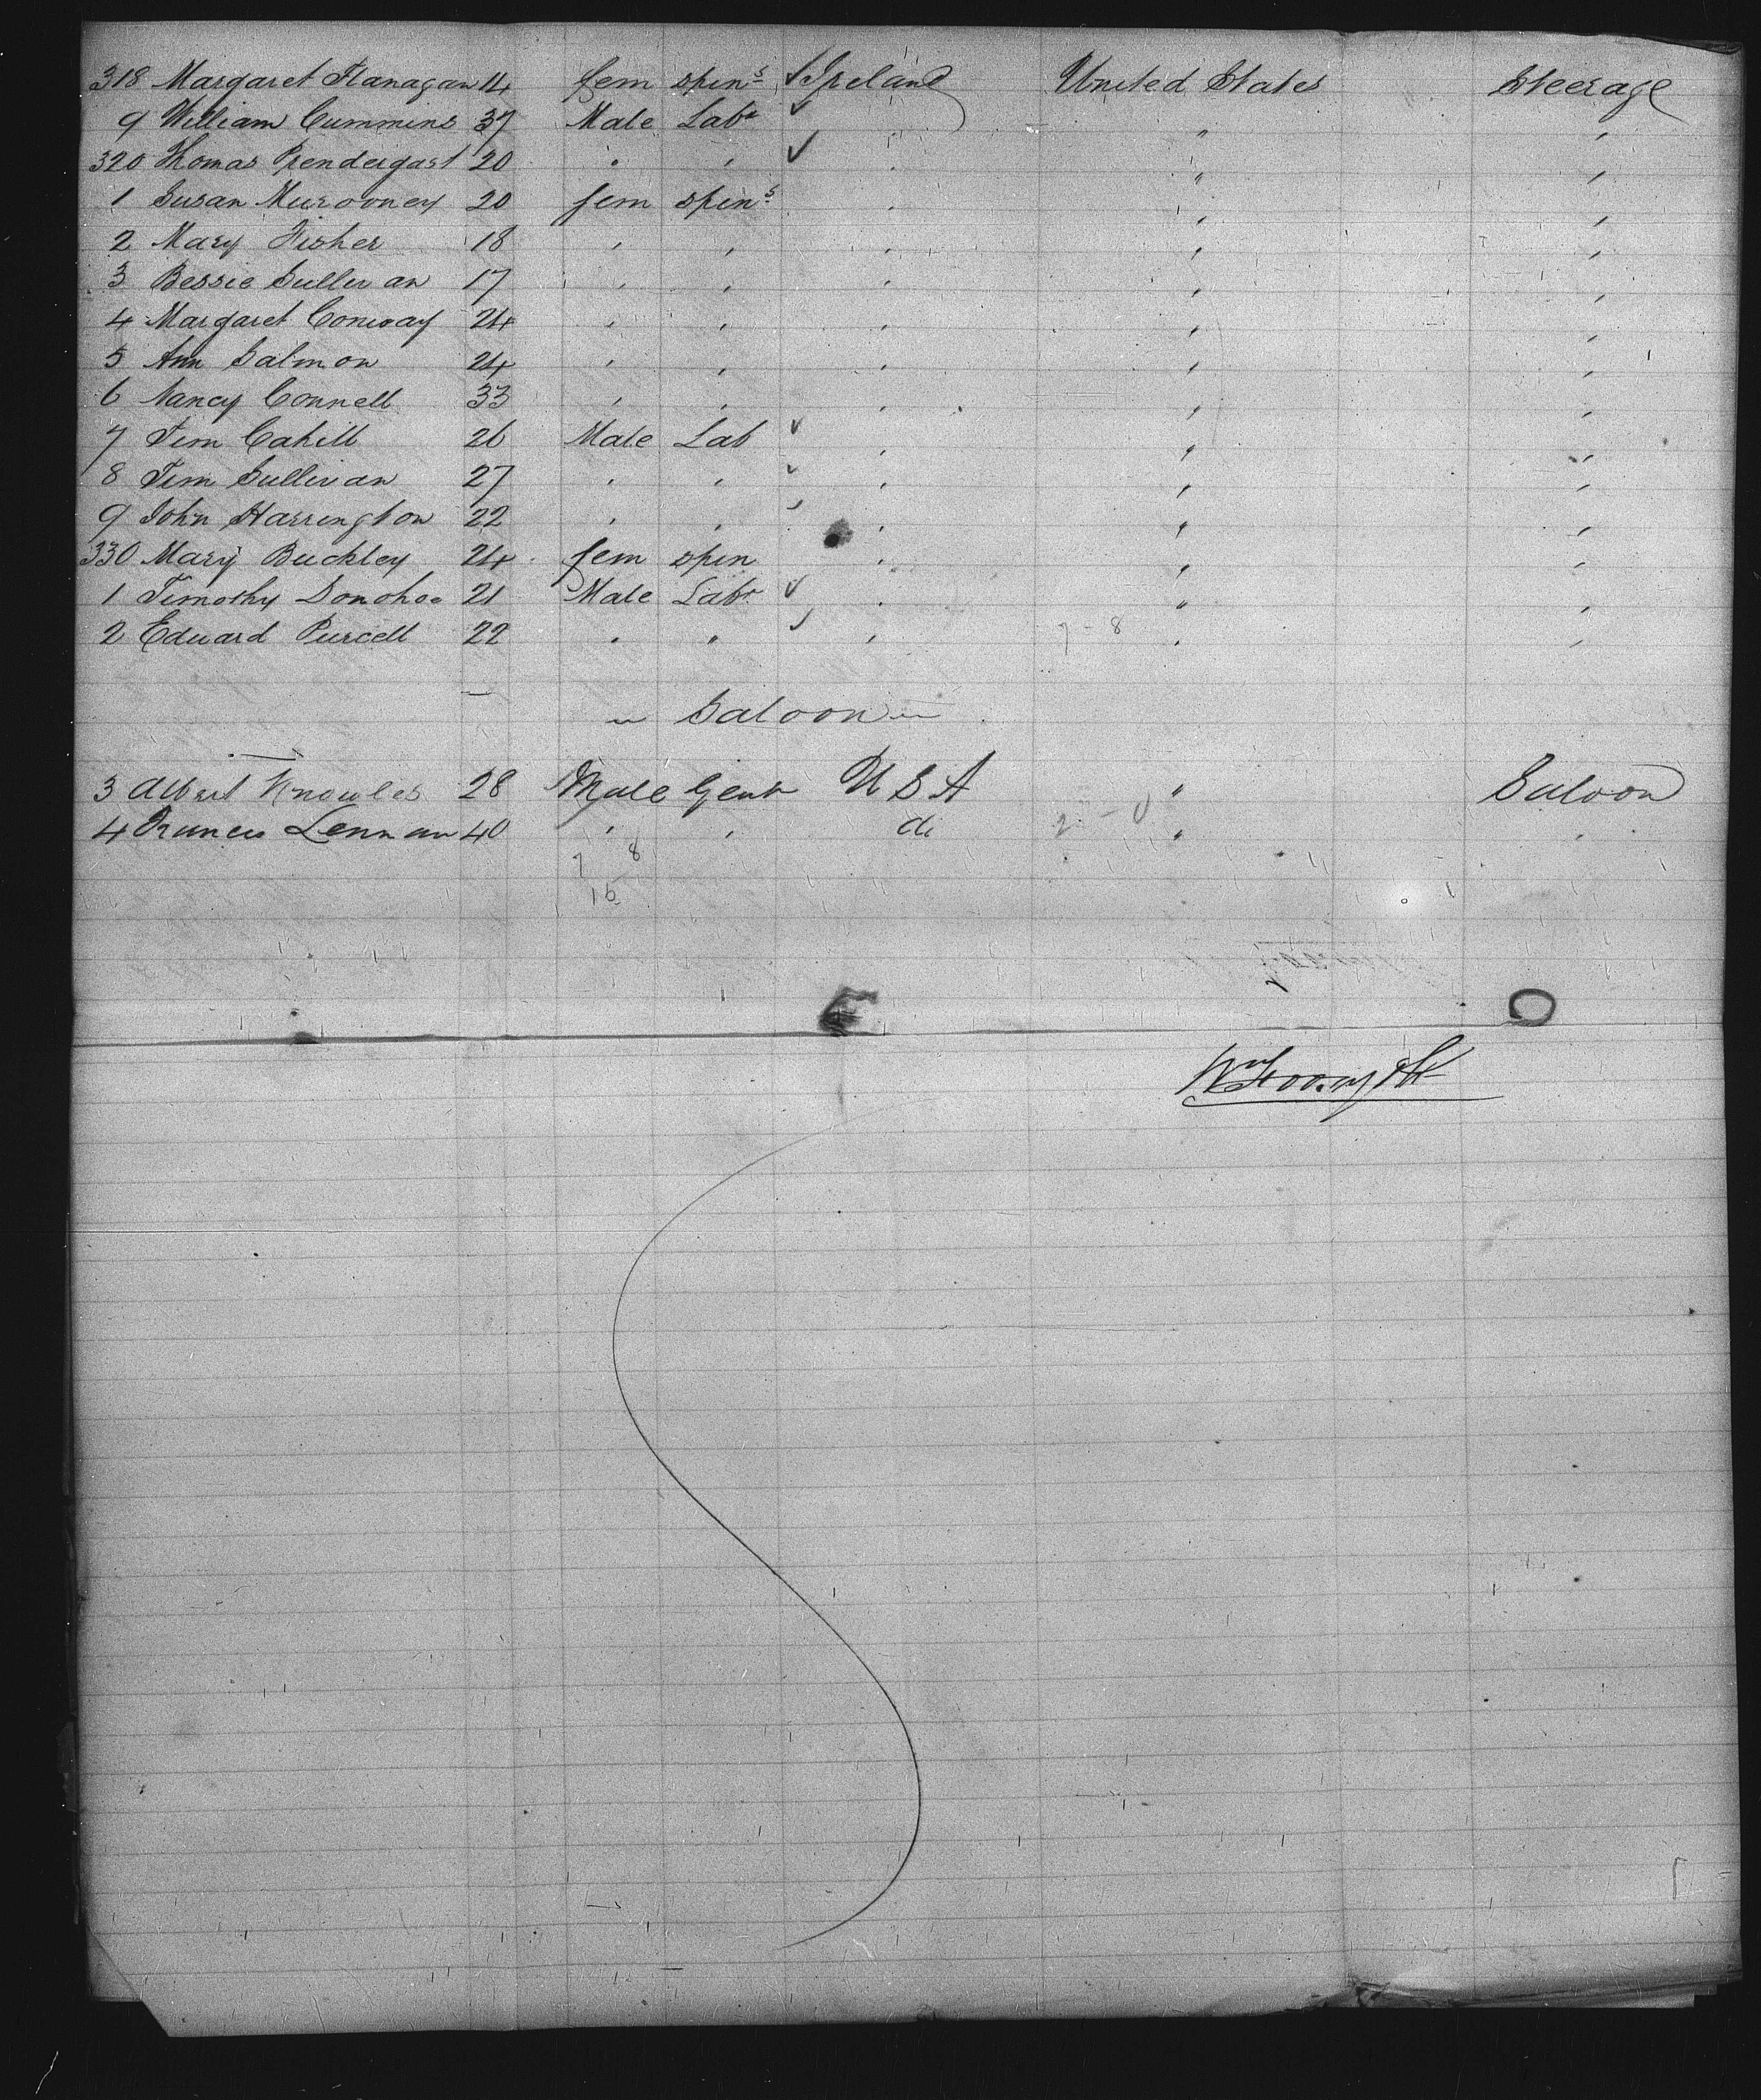 318 Margaret Flanagan 14 fem spinˢ ✓ Ireland United States Steerage
9 William Cummins 37 Male Labʳ ✓ " "
320 Thomas Prendergast 20 " " ✓ " " "
1 Susan Murooney 20 fem spinˢ " " "
2 Mary Fisher 18 " " " " "
3 Bessie Sullivan 17 " " " " "
4 Margaret Conway 24 " " " " "
5 Ann Salmon 24 " " " " "
6 Nancy Connell 33 " " " " "
7 Tim Cahill 26 Male Lab ✓ " " "
8 Tim Sullivan 27 " " ✓ " " "
9 John Harrington 22 " " ✓ " " "
330 Mary Buckley 24 fem spin " " "
1 Timothy Donohoe 21 Male Labʳ ✓ " " "
2 Edward Purcell 22 " " ✓ " 7 - 8 " "
Saloon
3 Albert Knowles 28 Male Gent U S A " Saloon
4 Francis Lennan 40 " " do 2 - 0 " "
7 8
15
Wm Forsyth